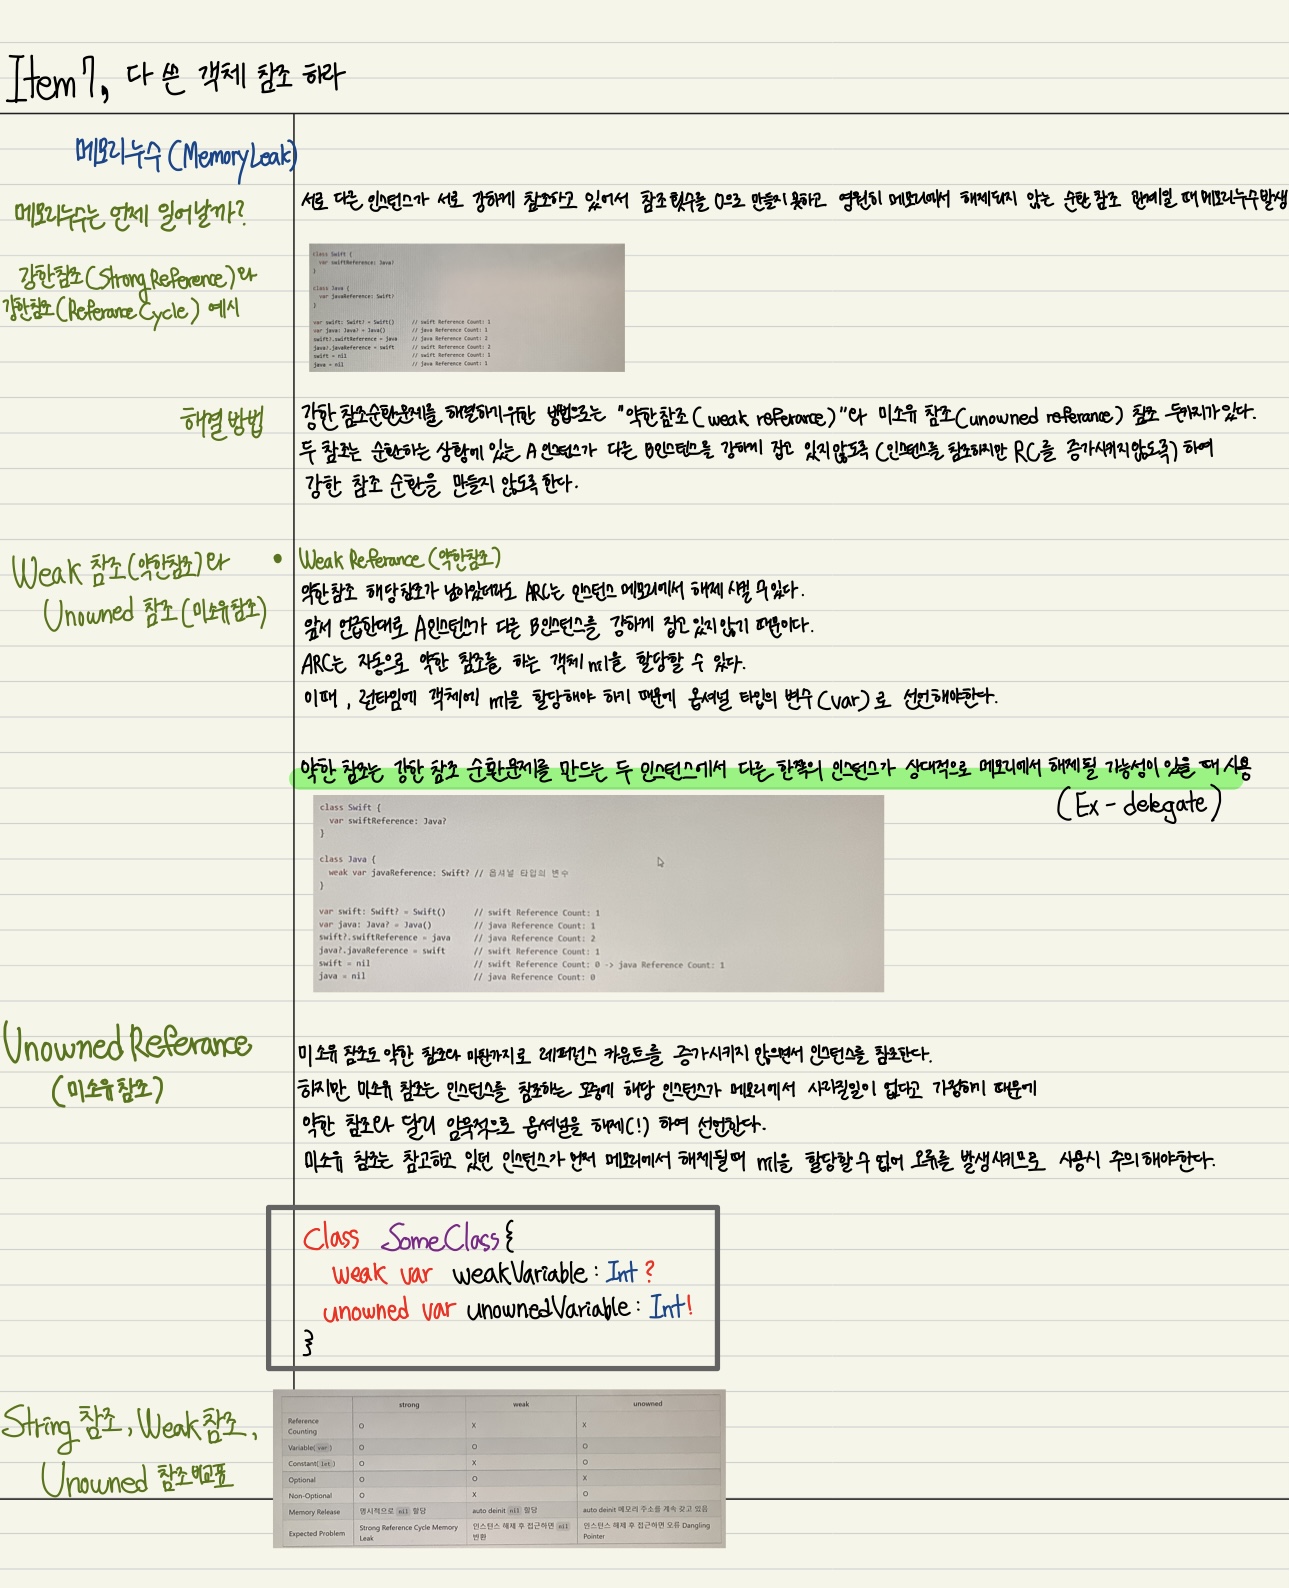 Item 7, 다 쓴 객체 참조 하라
메모리누수 (Memory Leak)
메모리누수는 언제 일어날까?
서로 다른 인스턴스가 서로 강하게 참조하고 있어서 참조 횟수를 0으로 만들지 못하고 영원히 메모리에서 해제되지 않는 순환 참조 관계일 때 메모리누수발생
강한참조(Strong Reference)와
강한참조(Referance Cycle) 예시
class Swift {
var swiftReference: Java?
}
class Java {
var javaReference: Swift?
}
var swift: Swift? = Swift() // swift Reference Count: 1
var java: Java? = Java() // java Reference Count: 1
swift?.swiftReference = java // java Reference Count: 2
java?.javaReference = swift // swift Reference Count: 2
swift = nil // swift Reference Count: 1
java = nil // java Reference Count: 1
해결방법
강한 참조순환문제를 해결하기위한 방법으로는 "약한참조(weak referance)"와 미소유 참조(unowned referance) 참조 두가지가 있다.
두 참조는 순환하는 상황에 있는 A인스턴스가 다른 B인스턴스를 강하게 잡고 있지않도록 (인스턴스를 참조하지만 RC를 증가시키지않도록) 하여
강한 참조 순환을 만들지 않도록 한다.
Weak 참조(약한참조)와
Unowned 참조(미소유참조)
• Weak Referance (약한참조)
약한참조 해당참조가 남아있더라도 ARC는 인스턴스 메모리에서 해제 시킬 수있다.
앞서 언급한대로 A인스턴스가 다른 B인스턴스를 강하게 잡고 있지 않기 때문이다.
ARC는 자동으로 약한 참조를 하는 객체 nil을 할당할 수 있다.
이때, 런타임에 객체에 nil을 할당해야 하기 때문에 옵셔널 타입의 변수(var)로 선언해야한다.
약한 참조는 강한 참조 순환문제를 만드는 두 인스턴스에서 다른 한쪽의 인스턴스가 상대적으로 메모리에서 해제될 가능성이 있을 때 사용
(Ex - delegate)
class Swift {
var swiftReference: Java?
}
class Java {
weak var javaReference: Swift? // 옵셔널 타입의 변수
}
var swift: Swift? = Swift() // swift Reference Count: 1
var java: Java? = Java() // java Reference Count: 1
swift?.swiftReference = java // java Reference Count: 2
java?.javaReference = swift // swift Reference Count: 1
swift = nil // swift Reference Count: 0 -> java Reference Count: 1
java = nil // java Reference Count: 0
Unowned Referance
(미소유참조)
미소유 참조도 약한 참조와 마찬가지로 레퍼런스 카운트를 증가시키지 않으면서 인스턴스를 참조한다.
하지만 미소유 참조는 인스턴스를 참조하는 도중에 해당 인스턴스가 메모리에서 사라질일이 없다고 가정하기 때문에
약한 참조와 달리 암묵적으로 옵셔널을 해제(!) 하여 선언한다.
미소유 참조는 참고하고 있던 인스턴스가 먼저 메모리에서 해제될때 nil을 할당할수 없어 오류를 발생시키므로 사용시 주의해야한다.
Class SomeClass {
weak var weakVariable : Int ?
unowned var unownedVariable : Int!
}
String 참조, Weak 참조,
Unowned 참조비교표
strong weak unowned
Reference Counting O X X
Variable(var) O O O
Constant(let) O X O
Optional O O X
Non-Optional O X O
Memory Release 명시적으로 nil 할당 auto deinit nil 할당 auto deinit 메모리 주소를 계속 갖고 있음
Expected Problem Strong Reference Cycle Memory Leak 인스턴스 해제 후 접근하면 nil 반환 인스턴스 해제 후 접근하면 오류 Dangling Pointer